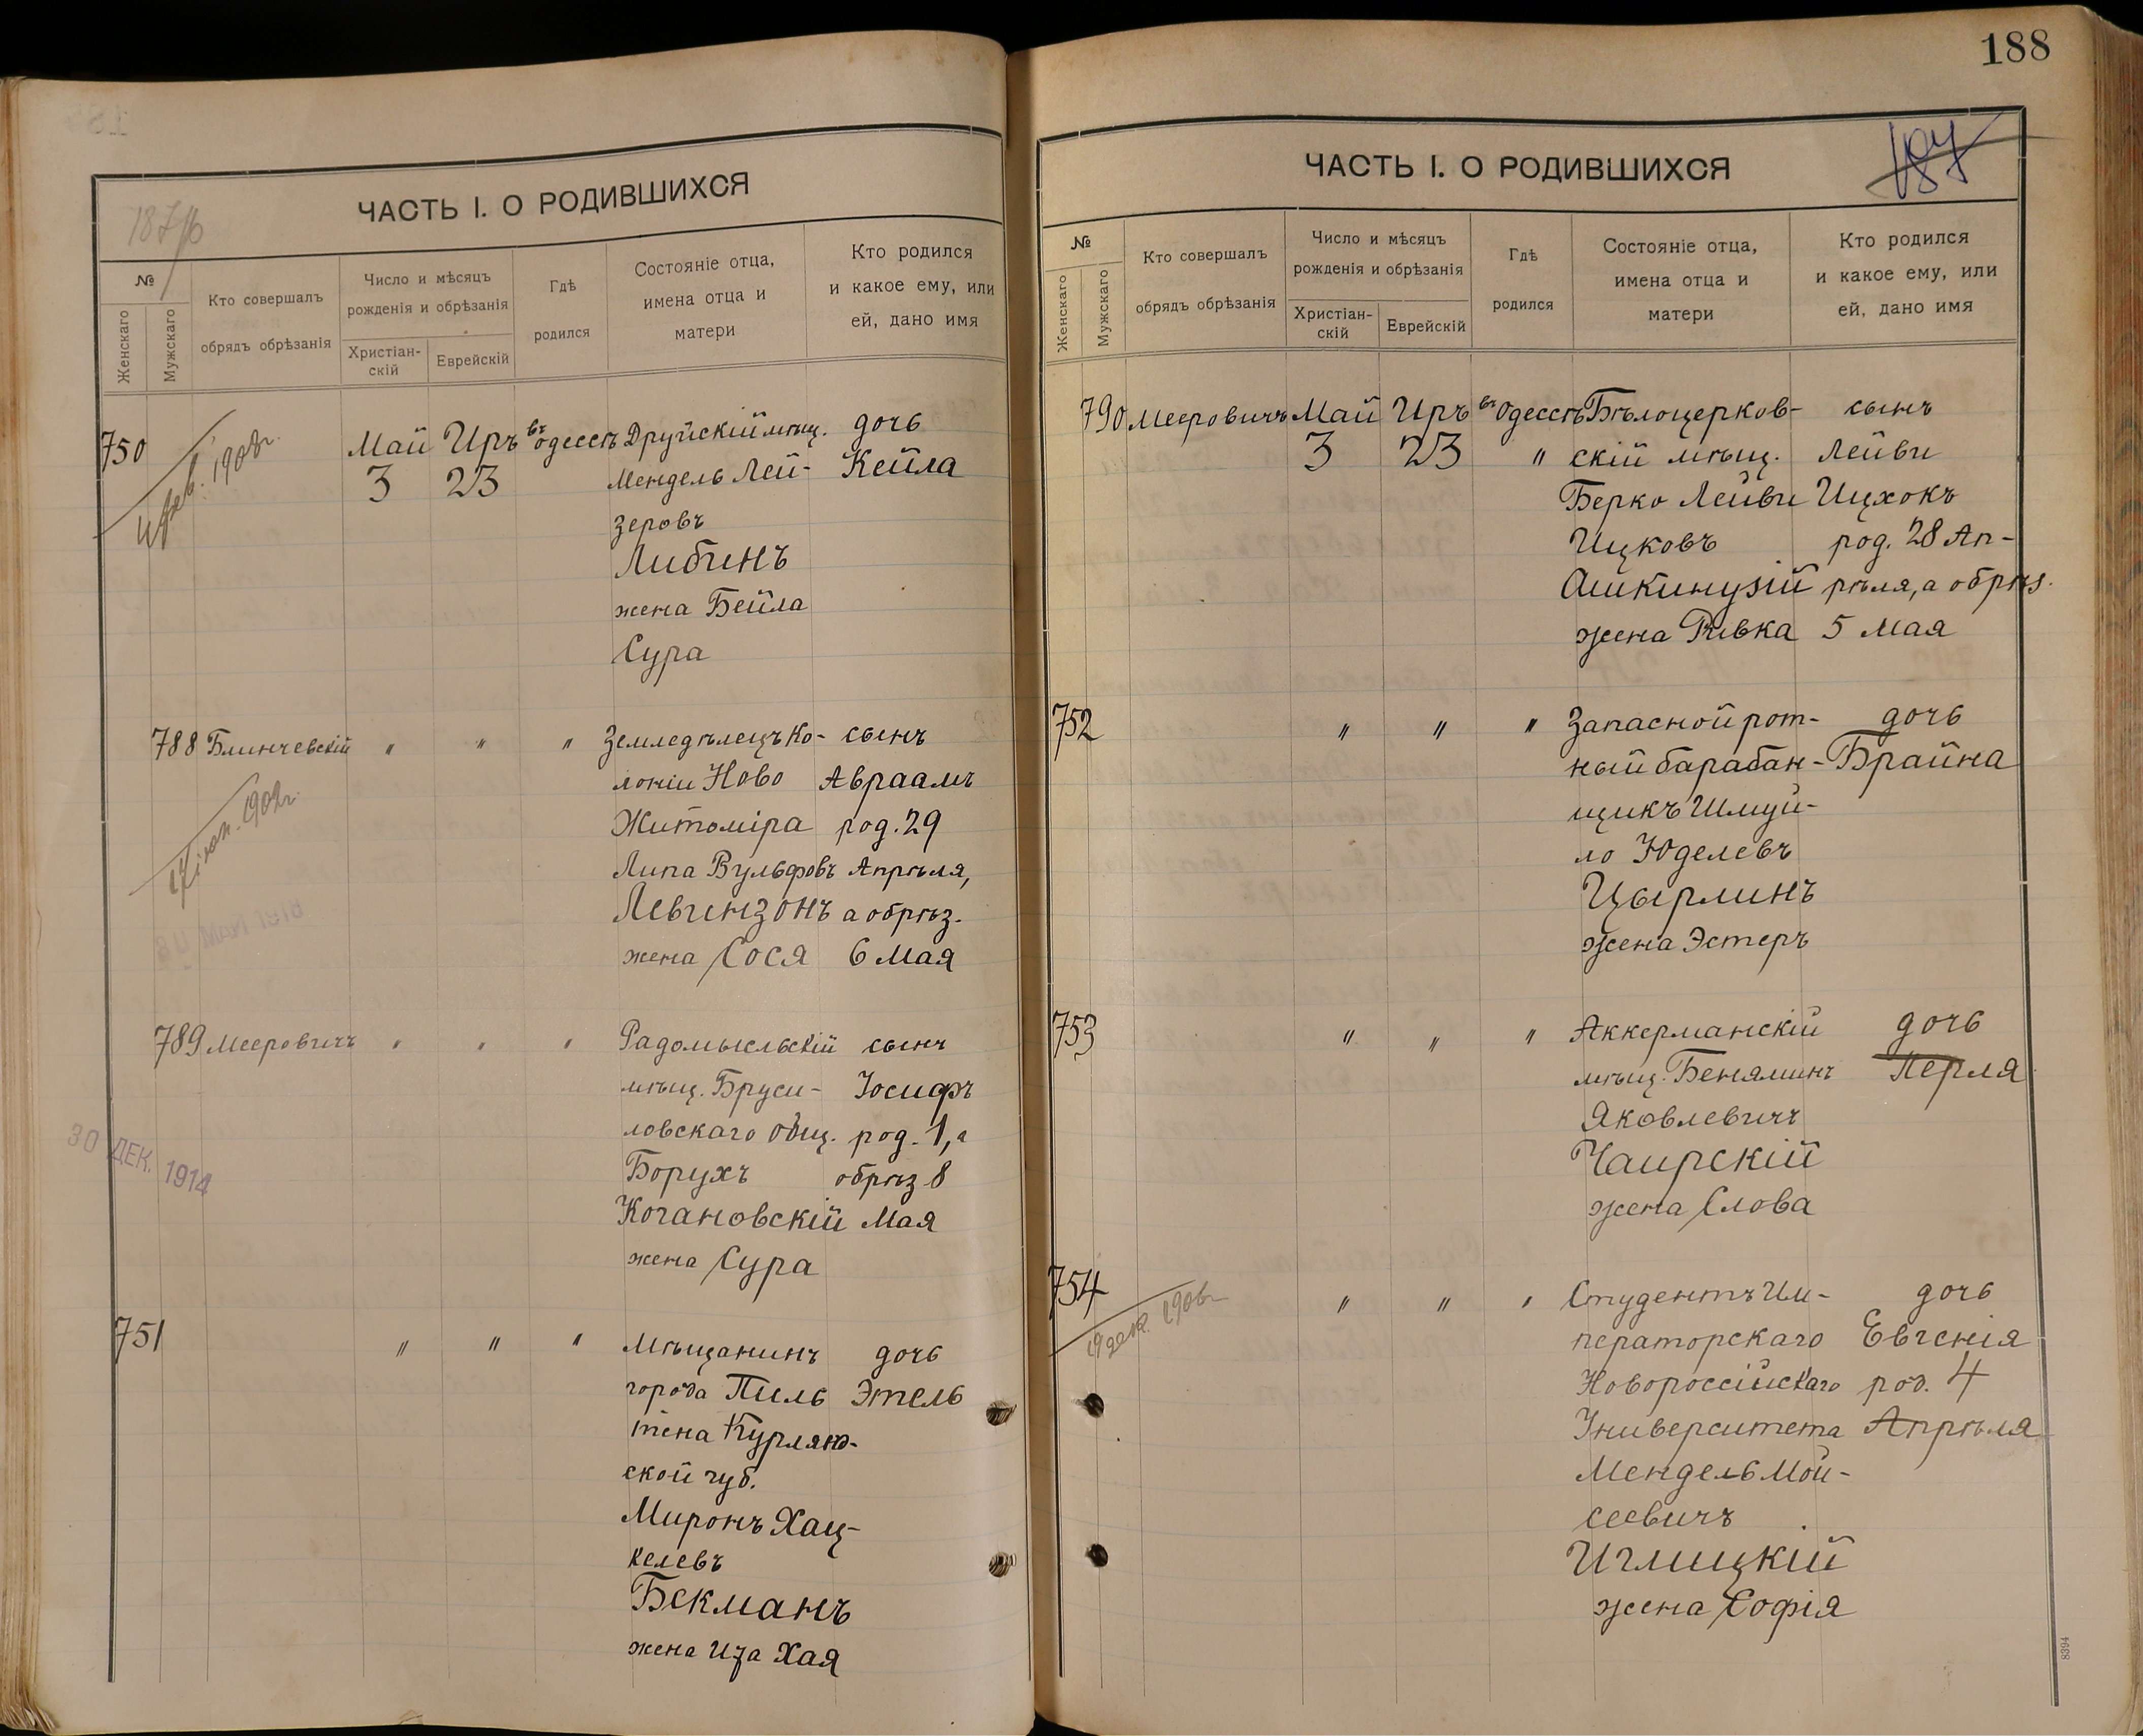 ЧАСТЬ I. О РОДИВШИХСЯ
187/б
№
Женскаго
Мужскаго
Кто совершалъ
обрядъ обрѣзанія
Число и мѣсяцъ
рожденія и обрѣзанія
Христіан-
скій
Еврейскій
Гдѣ
родился
Состояніе отца,
имена отца и
матери
Кто родился
и какое ему, или
ей, дано имя
750 Май Иръ въ Одессѣ Друйскій мѣщ. дочь
3 23 Мендель Лей- Кейла
зеровъ
Либинъ
жена Бейла
Сура
1908г.
788 Блинчевскій " " " Земледѣлецъ Ко- сынъ
лоніи Ново Авраамъ
Житоміра род. 29
Липа Вульфовъ Апрѣля,
Левинзонъ а обрѣз.
жена Сося 6 Мая
1902г.
789 Мееровичъ " " " Радомысльскій сынъ
мѣщ. Бруси- Іосифъ
ловскаго общ. род. 1, а
Борухъ обрѣз 8
Когановскій Мая
жена Сура
30 ДЕК. 1914
751 " " " Мѣщанинъ дочь
города Пиль Этель
тена Курлянд-
ской губ.
Миронъ Хац-
келевъ
Бекманъ
жена Иза Хая
188
ЧАСТЬ I. О РОДИВШИХСЯ
№
Женскаго
Мужскаго
Кто совершалъ
обрядъ обрѣзанія
Число и мѣсяцъ
рожденія и обрѣзанія
Христіан-
скій
Еврейскій
Гдѣ
родился
Состояніе отца,
имена отца и
матери
Кто родился
и какое ему, или
ей, дано имя
790 Мееровичъ Май Иръ въ Одессѣ Бѣлоцерков- сынъ
3 23 " скій мѣщ. Лейви
Берко Лейви Ицхокъ
Ицковъ род. 28 Ап-
Ашкинузій рѣля, а обрѣз.
жена Ривка 5 Мая
752 " " " Запасной рот- дочь
ный барабан- Брайна
щикъ Шмуй-
ло Юделевъ
Цырлинъ
жена Эстеръ
753 " " " Аккерманскій дочь
мѣщ. Беняминъ Перля
Яковлевичъ
Чаирскій
жена Слова
754 " " " Студентъ Им- дочь
ператорскаго Евгенія
Новороссійскаго род. 4
Университета Апрѣля
Мендель Мои-
сеевичъ
Иглицкій
жена Софія
19 дек. 1906г
8394